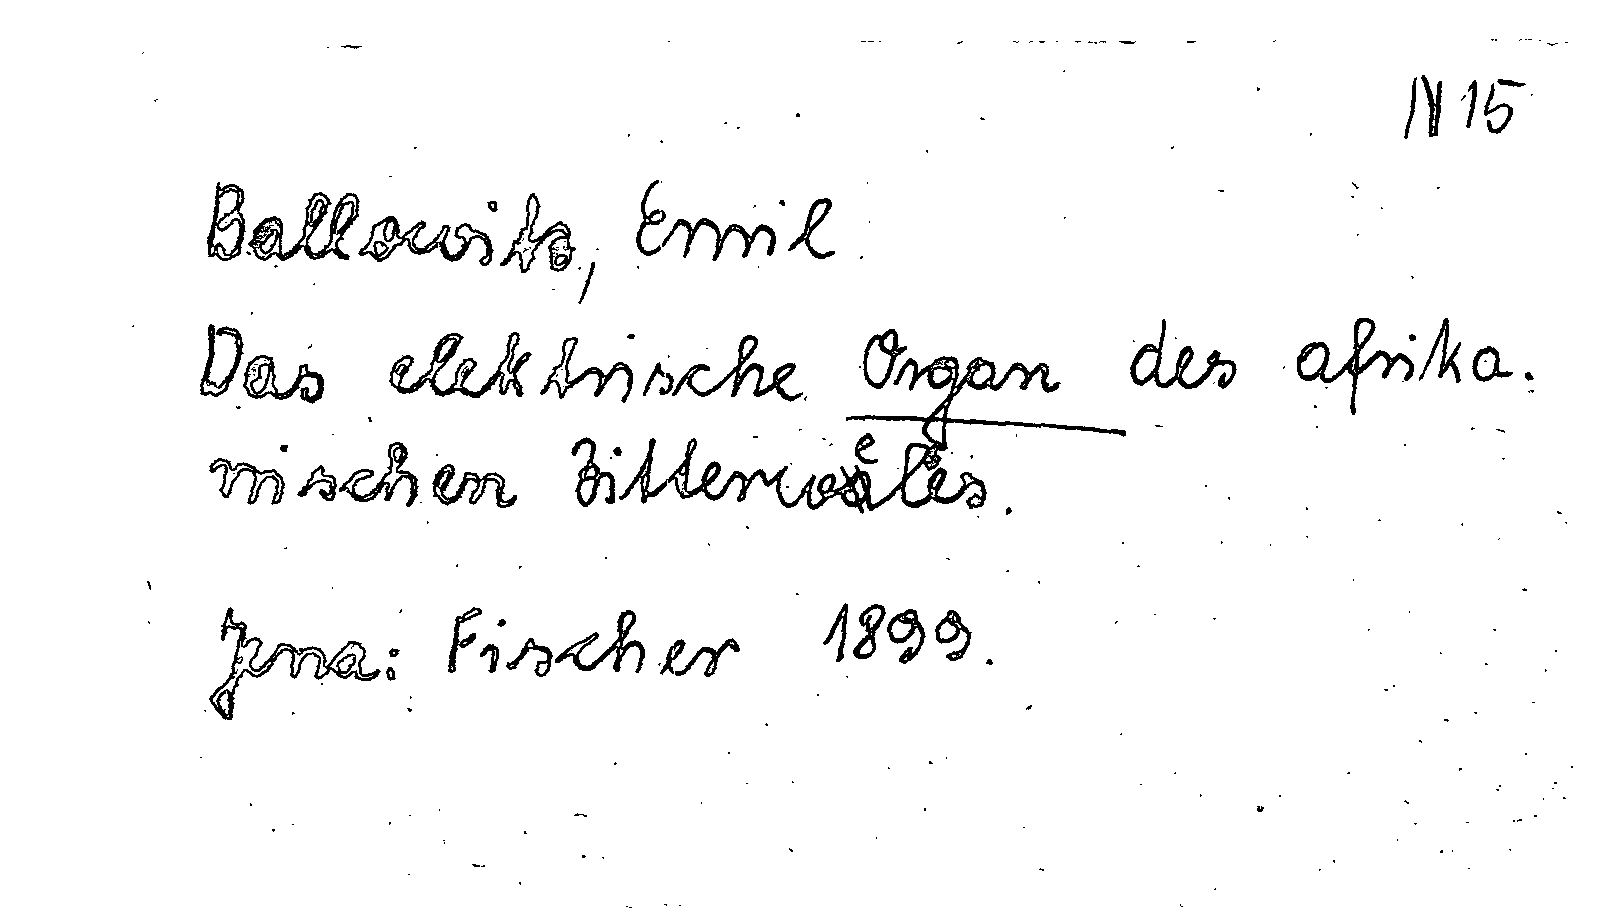 N 15
Ballowitz, Emil
Das elektrische Organ des afrika-
nischen Zitterwelses.
Jena: Fischer 1899.